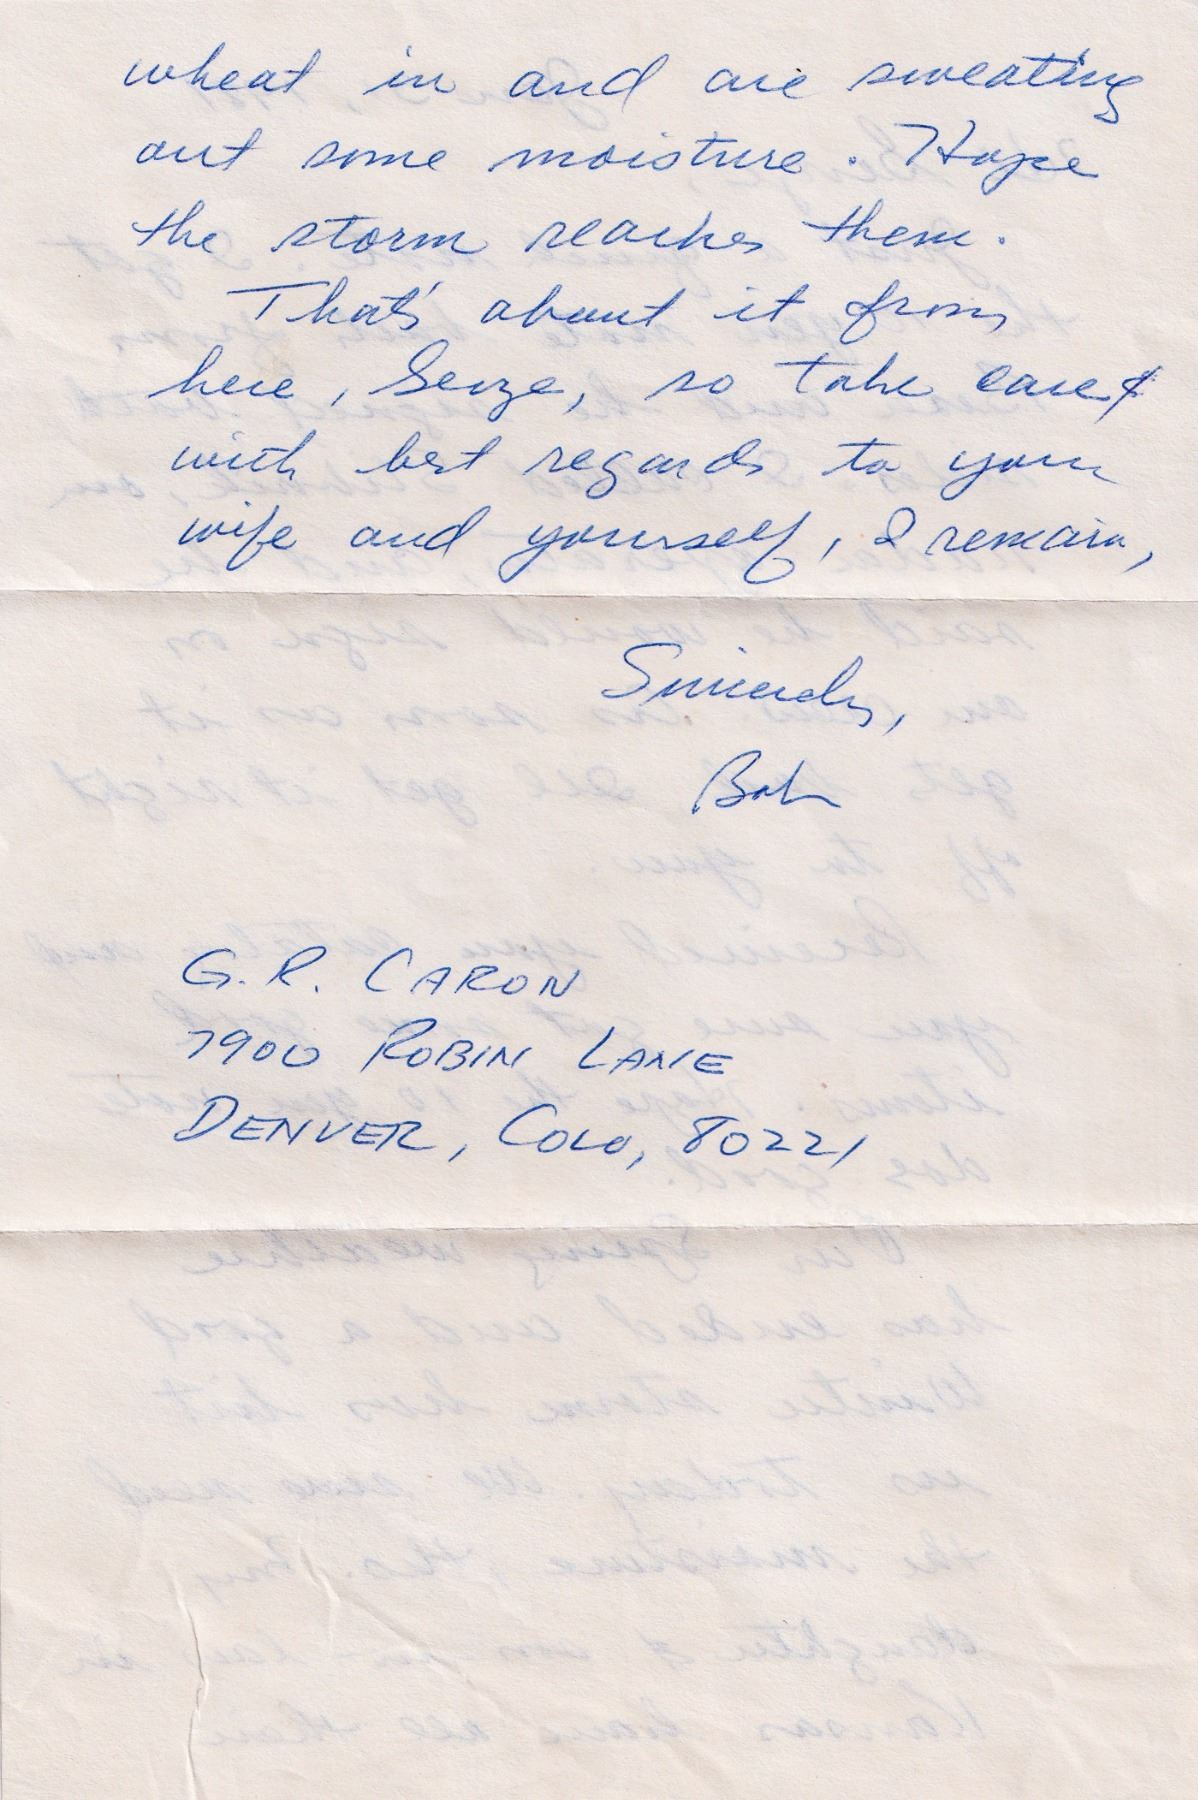 wheat in and are sweating
out some moisture. Hope
the storm reaches them.
That's about it from
here, Serge, so take care &
with best regards to your
wife and yourself, I remain,
Sincerely,
Bob
G. R. CARON
7900 ROBIN LANE
DENVER, COLO, 80221